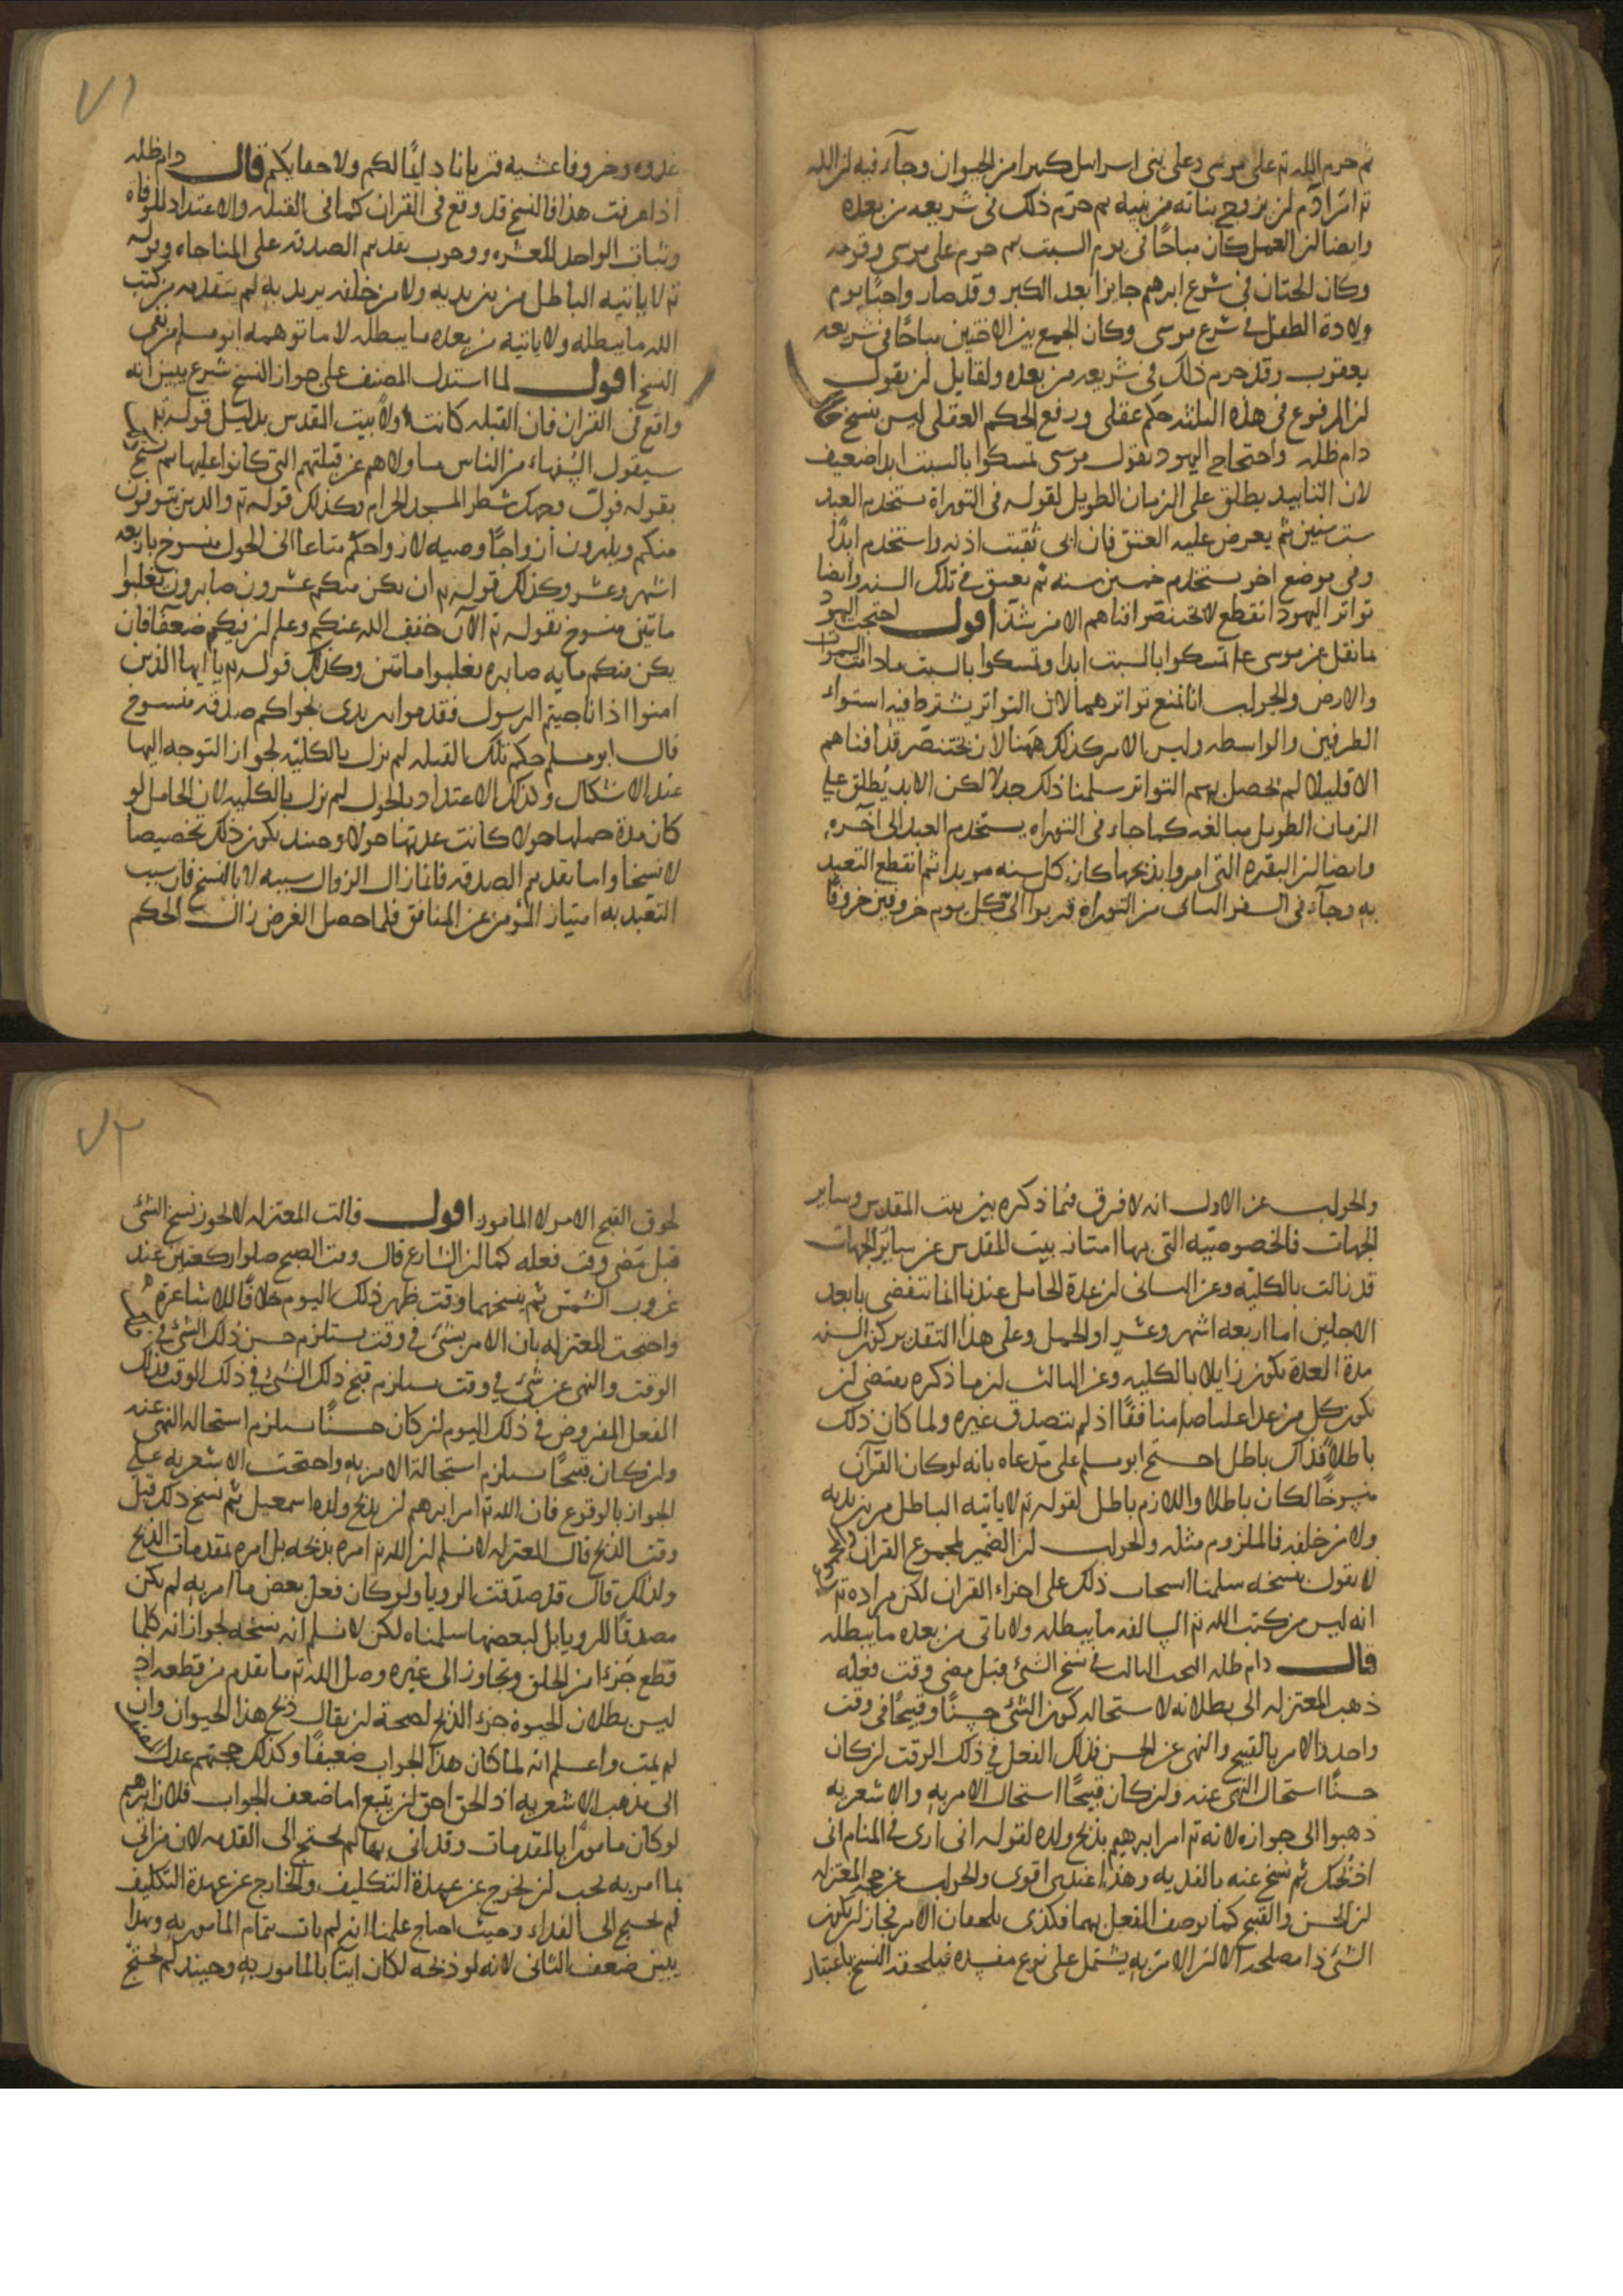 ثم حرم الله تم على موسى وعلى بني اسرايل كثيرا من الحيوان وجاء فيه ان الله
تم امر ادم ان يزوج بناته من بنيه ثم حرم ذلك في شريعه من بعده
وايضا ان العمل كان مباحًا في يوم السبت ثم حرم على موسى وقومه
وكان الختان في شرع ابرهيم جايزا بعد الكبر وقد صار واجبًا يوم
ولادة الطفل في شرع موسى وكان الجمع بين الاختين مباحًا في شريعه
يعقوب وقد حرم ذلك في شريعه من بعده ولقايل ان يقول
ان المرفوع في هذه الثلثه حكم عقلي ورفع الحكم العقلي ليس بنسخ قال
دام ظله واحتجاج اليهود بقول موسى تمسكوا بالسبت ابدا ضعيف
لان التابيد يطلق على الزمان الطويل لقوله في التوراة يستخدم العبد
ست سنين ثم يعرض عليه العتق فان ابى ثقبت اذنه واستخدم ابدًا
وفي موضع اخر يستخدم خمسين سنه ثم يعتق في تلك السنه وايضا
تواتر اليهود انقطع لان بختنصر افناهم الا من شذ اقول احتجت اليهود
بما نقل عن موسى عل تمسكوا بالسبت ابدا وتمسكوا بالسبت ما دامت السموات
والارض والجواب انا نمنع تواترهما لان التواتر يشترط فيه استواء
الطرفين والواسطه وليس الامر كذلك ههنا لان بختنصر قد افناهم
الا قليلا لم يحصل بهم التواتر سلمنا ذلك جدلا لكن الابد يطلق على
الزمان الطويل مبالغه كما جاء في التوراه يستخدم العبد الى آخره
وايضا ان البقره التي امروا بذبحها كان كل سنه موبدا ثم انقطع التعبد
به وجاء في السفر الثاني من التوراة قربوا الي كل يوم خروفين خروفا
٧١
غدوه وخروفا عشيه قربانا دايمًا لكم ولاحقابكم قال دام ظله
اذا عرفت هذا فالنسخ قد وقع في القران كما في القبله والاعتداد للوفاه
وثبات الواحد للعشره ووجوب تقديم الصدقه على المناجاه وقوله
تم لا ياتيه الباطل من بين يديه ولا من خلفه يريد به لم يتقدمه من كتب
الله ما يبطله ولا ياتيه من بعده ما يبطله لا ما توهمه ابو مسلم من نفي
النسخ اقول لما استدل المصنف على جواز النسخ شرع يبين انه
واقع في القران فان القبله كانت اولاً بيت المقدس بدليل قوله تم
سيقول السفهاء من الناس ما ولاهم عن قبلتهم التي كانوا عليها ثم نسخ
بقوله فولّ وجهك شطر المسجد الحرام وكذلك قوله تم والذين يتوفون
منكم ويذرون ازواجًا وصيه لازواجكم متاعا الى الحول منسوخ باربعه
اشهر وعشر وكذلك قوله تم ان يكن منكم عشرون صابرون يغلبوا
مايتين منسوخ بقوله تم الآن خفف الله عنكم وعلم ان فيكم ضعفا فان
يكن منكم مايه صابره يغلبوا مايتين وكذلك قوله تم يا ايها الذين
امنوا اذا ناجيتم الرسول فقدموا بين يدي نجواكم صدقه منسوخ
قال ابو مسلم حكم تلك القبله لم يزل بالكليّه لجواز التوجه اليها
عند الاشكال وكذلك الاعتداد بالحول لم يزل بالكليه لان الحامل لو
كان مدة حملها حولا كانت عدتها حولا وحينئذ يكون ذلك تخصيصا
لا نسخا واما تقديم الصدقه فانما زال الزوال سببه لا بالنسخ فان سبب
التعبد به امتياز المؤمن عن المنافق فلما حصل الغرض زال الحكم
والجواب عن الاول انه لا فرق فيما ذكره بين بيت المقدس وساير
الجهات فالخصوصيّه التي بها امتاز بيت المقدس عن ساير الجهات
قد زالت بالكليّه وعن الثاني ان عدة الحامل عندنا انما تنقضي بابعد
الاجلين اما اربعه اشهر وعشر او الحمل وعلى هذا التقدير كون السنه
مدة العدة يكون زايلا بالكليه وعن الثالث ان ما ذكره يقتضي ان
يكون كل من عدا عليا صلم منافقًا اذ لم يتصدق غيره ولما كان ذلك
باطلاً فذاك باطل احتج ابو مسلم على مدعاه بانه لو كان القرآن
منسوخًا لكان باطلا واللازم باطل لقوله تم لا ياتيه الباطل من بين يديه
ولا من خلفه فالملزوم مثله والجواب ان الضمير لمجموع القران والمجموع
لا نقول بنسخه سلمنا انسحاب ذلك على اجزاء القران لكن مراده تم
انه ليس من كتب الله تم السالفه ما يبطله ولا ياتي من بعده ما يبطله
قال دام ظله البحث الثالث في نسخ الشئ قبل مضي وقت فعله
ذهب المعتزله الى بطلانه لاستحاله كون الشئ حسنًا وقبيحًا في وقت
واحد والامر بالقبيح والنهي عن الحسن فذلك الفعل في ذلك الوقت ان كان
حسنًا استحال النهي عنه وان كان قبيحًا استحال الامر به والاشعريه
ذهبوا الى جوازه لانه تم امر ابرهيم بذبح ولده لقوله اني ارى في المنام اني
اذبحك ثم نسخ عنه بالفديه وهذا عندي اقوى والجواب عن حجه المعتزله
ان الحسن والقبيح كما يوصف الفعل بهما فكذى يلحقان الامر فجاز ان يكون
الشئ ذا مصلحه الا ان الامر به يشتمل على نوع مفسده فيلحقه النسخ باعتبار
٧٢
لحوق القبح الامر لا المامور اقول قالت المعتزله لا يجوز نسخ الشئ
قبل مضي وقت فعله كما ان الشارع قال وقت الصبح صلوا ركعتين عند
غروب الشمس ثم ينسخهما وقت ظهر ذلك اليوم خلافًا للاشاعرة
واحتجت المعتزله بان الامر بشئ في وقت يستلزم حسن ذلك الشئ في ذلك
الوقت والنهي عن شئ في وقت يستلزم قبح ذلك الشئ في ذلك الوقت فذلك
الفعل المفروض في ذلك اليوم ان كان حسنًا يستلزم استحاله النهي عنه
وان كان قبيحًا يستلزم استحالة الامر به واحتجت الاشعريه على
الجواز بالوقوع فان الله تم امر ابرهيم ان يذبح ولده اسمعيل ثم نسخ ذلك قبل
وقت الذبح قال المعتزله لا نسلم ان الله تم امره بذبحه بل امره بمقدمات الذبح
ولذلك قال قد صدقت الرويا ولو كان فعل بعض ما امر به لم يكن
مصدقًا للرويا بل لبعضها سلمناه لكن لا نسلم انه نسخه لجواز انه كلما
قطع جزءا من الحلق وتجاوز الى غيره وصل الله تم ما تقدم من قطعه اذ
ليس بطلان الحيوة جزء الذبح لصحة ان يقال ذبح هذا الحيوان وان
لم يمت واعلم انه لما كان هذا الجواب ضعيفًا وكذلك حجتهم عدل المصنف
الى مذهب الاشعريه اذ الحق احق ان يتبع اما ضعف الجواب فلان ابرهيم
لو كان مامورا بالمقدمات وقد اتى بها لم يحتج الى الفديه لان من اتى
بما امر به يجب ان يخرج عن عهدة التكليف والخارج عن عهدة التكليف
لم يحتج الى الفداء وحيث احتاج علمنا انه لم يات بتمام المامور به وبهذا
يبين ضعف الثاني لانه لو ذبحه لكان ايتا بالمامور به وحينئذ لم يحتج